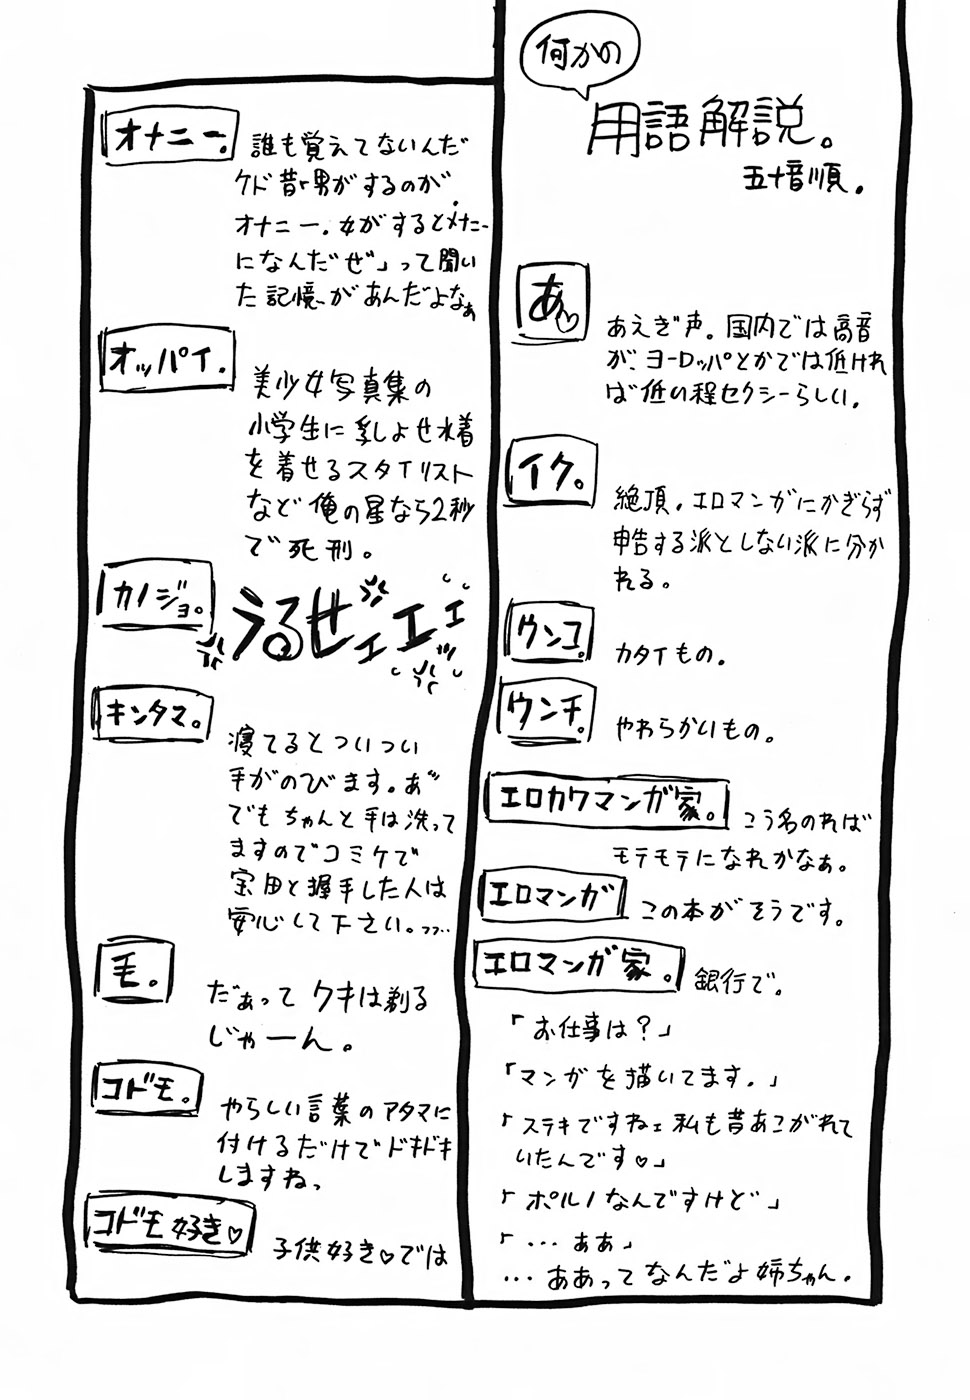 何かの
用語解説。
五十音順。
あ♡
あえぎ声。国内では高音
が、ヨーロッパとかでは低けれ
ば低い程セクシーらしい。
イク。
絶頂。エロマンガにかぎらず
申告する派としない派に分か
れる。
ウンコ。
カタイもの。
ウンチ。
やわらかいもの。
エロカワマンガ家。
こう名のれば
モテモテになれかなぁ。
エロマンガ
この本がそうです。
エロマンガ家。
銀行で。
「お仕事は?」
「マンガを描いてます。」
「ステキですねェ私も昔あこがれて
いたんです♡」
「ポルノなんですけど」
「…ああ」
…ああってなんだよ姉ちゃん。
オナニー。
誰も覚えてないんだ
ケド昔「男がするのが
オナニー。女がするとメナニー
になんだぜ」って聞い
た記憶があんだよなぁ
オッパイ.
美少女写真集の
小学生に乳よせ水着
を着せるスタイリスト
など俺の星なら2秒
で死刑。
カノジョ。
うるせェエェ
キンタマ。
寝てるとついつい
手がのびます。あ゛
でもちゃんと手は洗って
ますのでコミケで
宝田と握手した人は
安心して下さい。フフ…
毛。
だぁってワキは剃る
じゃーん。